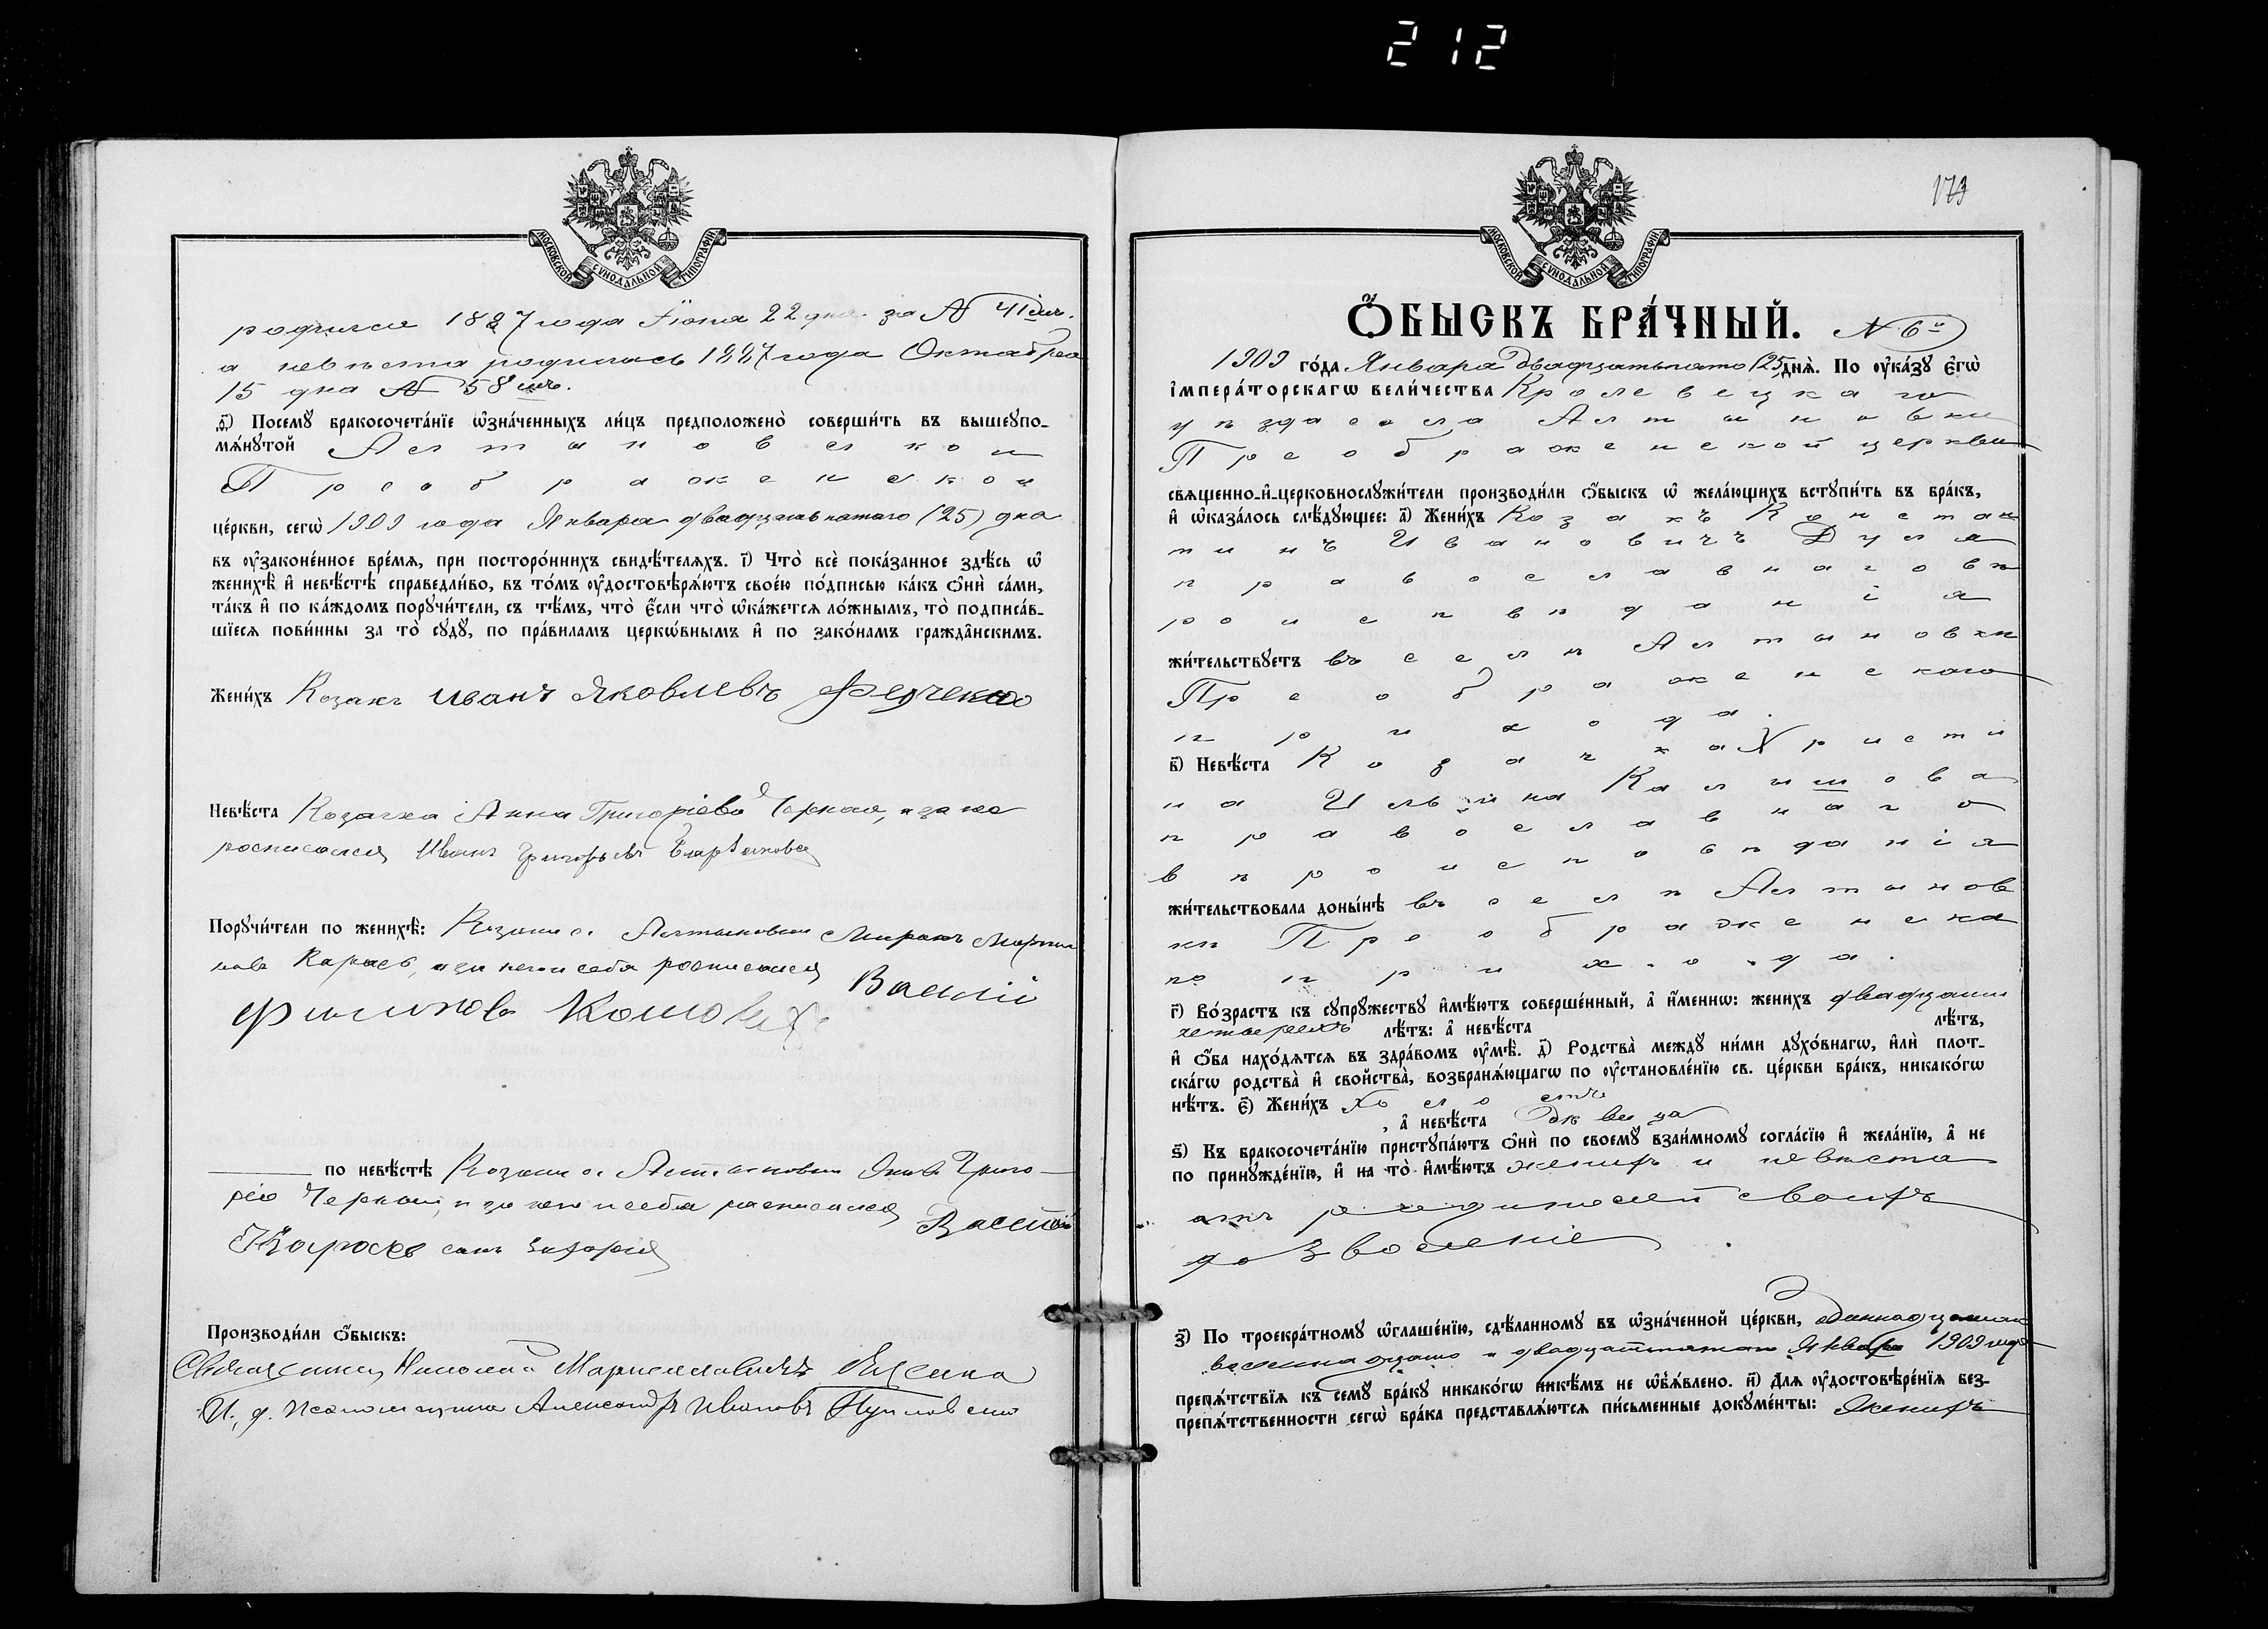 212
МОСКОВСКОЙ СѴНОДАЛЬНОЙ ТИПОГРАФІИ
родился 1887 года Іюня 22 дня. за № 41 мъ.
а невѣста родилась 1887 года Октября
15 дня № 58 мъ.
д҃і) Посемꙋ̀ бракосочета́нїе ѡ҆зна́ченныхъ ли́цъ предположено̀ соверши́ть въ вышеꙋпо-
мѧ́нꙋтой Алтыновской
Преображенской
це́ркви, сегѡ̀ 1909 года Января двадцать пятаго (25) дня
въ ᲂу҆зако́ненное вре́мя, при посторо́ннихъ свидѣ́телѧхъ. г҃і) Что̀ всѐ пока́занное здѣ́сь ѡ҆
женихѣ̀ и҆ невѣ́стѣ справедли́во, въ то́мъ ᲂу҆достовѣрѧ́ютъ свое́ю по́дписью ка́къ ѻ҆нѝ са́ми,
та́къ и҆ по ка́ждомъ порꙋчи́тели, съ тѣ́мъ, что̀ є҆́сли что̀ ѡ҆ка́жется ло́жнымъ, то̀ подписа́в-
шїеся пови́нны за то̀ сꙋдꙋ̀, по пра́виламъ церкѡ́внымъ и҆ по зако́намъ гражда́нскимъ.
Жени́хъ Козакъ Иванъ Яковлевъ
Невѣ́ста Козачка Анна Григоріева Черная, а за нее
росписался Иванъ Григорьевъ
Порꙋчи́тели по женихѣ̀: Козаки с. Алтыновки Миронъ Марти
новъ Карась, а за него и себя росписался Василій
Филиповъ
по невѣ́стѣ Козаки с. Алтыновки Яковъ Григо
рія Черный, и за него и себя росписался Василій
Карась сынъ Захарія
Производи́ли ѻ҆́быскъ:
Священникъ Николай
И. д. псаломщика Александръ Ивановъ
173
МОСКОВСКОЙ СѴНОДАЛЬНОЙ ТИПОГРАФІИ
Ѻ҆́БЫСКЪ БРА́ЧНЫЙ. № 6й
1909 го́да Января двадцать пятаго (25) днѧ̀. По ᲂу҆ка́зꙋ Є҆гѡ̀
І҆мпера́торскагѡ вели́чества Кролевецкаго
уѣзда села Алтыновки
Преображенской церкви
свѧщенно-и҆-церковнослꙋжи́тели производи́ли ѻ҆́быскъ ѡ҆ жела́ющихъ встꙋпи́ть въ бра́къ,
и҆ ѡ҆каза́лось слѣ́дꙋющее: а҃) Жени́хъ Козакъ Констан
тинъ Ивановичъ Дуля
православнаго вѣ
роисповѣданія
жи́тельствꙋетъ въ селѣ Алтыновки
Преображенскаго
прихода.
в҃) Невѣ́ста Козачка Христи
на Ильина Калышова
православнаго
вѣроисповѣданія
жи́тельствовала доны́нѣ въ селѣ Алтынов
ки Преображенска
го прихода.
г҃) Во́зрастъ къ сꙋпрꙋ́жествꙋ и҆мѣ́ютъ соверше́нный, а҆ и҆́меннѡ: жени́хъ двадцати
четырехъ лѣ́тъ: а҆ невѣ́ста лѣ́тъ,
и҆ ѻ҆́ба нахо́дѧтся въ здра́вомъ ᲂу҆мѣ̀. д҃) Родства̀ междꙋ̀ ни́ми дꙋхо́внагѡ, и҆лѝ плот-
ска́гѡ родства̀ и҆ свойства̀, возбранѧ́ющагѡ по ᲂу҆становле́нїю св. це́ркви бра́къ, никако́гѡ
нѣ́тъ. є҃) Жени́хъ холостъ
, а҆ невѣ́ста дѣвица
ѕ҃) Къ бракосочета́нїю пристꙋпа́ютъ ѻ҆нѝ по своемꙋ̀ взаи́мномꙋ согла́сїю и҆ жела́нїю, а҆ не
по принꙋжде́нїю, и҆ на то̀ и҆мѣ́ютъ женихъ и невѣста
отъ родителей своихъ
дозволеніе
з҃) По троекра́тномꙋ ѡ҆глаше́нїю, сдѣ́ланномꙋ въ ѡ҆зна́ченной це́ркви,
восемнадцато и двадцатьпятаго Января 1909 года
препѧ́тствїя къ семꙋ̀ бра́кꙋ никако́гѡ никѣ́мъ не ѡ҆б̾ѧ́влено. и҃) Длѧ̀ ᲂу҆достовѣре́нїя без-
препѧ́тственности сегѡ̀ бра́ка представлѧ́ются пи́сьменные докꙋме́нты: Женихъ